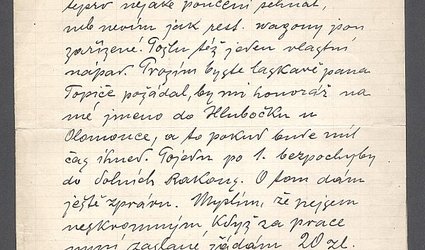 teprv nějaké poučení sehnat,
neb nevím jak rest. wagony jsou
zařízené. Pošlu též jeden vlastní
nápad. Prosím byste laskavě pana
Topiče požádal, by mi honorář na
mé jméno do Hlubočku u
Olomouce, a to pokud bude mít
čas ihned. Pojedu po 1. bezpochyby
do dolních Rakous. O tom dám
ještě zprávu. Myslím, že nejsem
neskromným, když za práce
nyní zaslané žádám 20 zl.